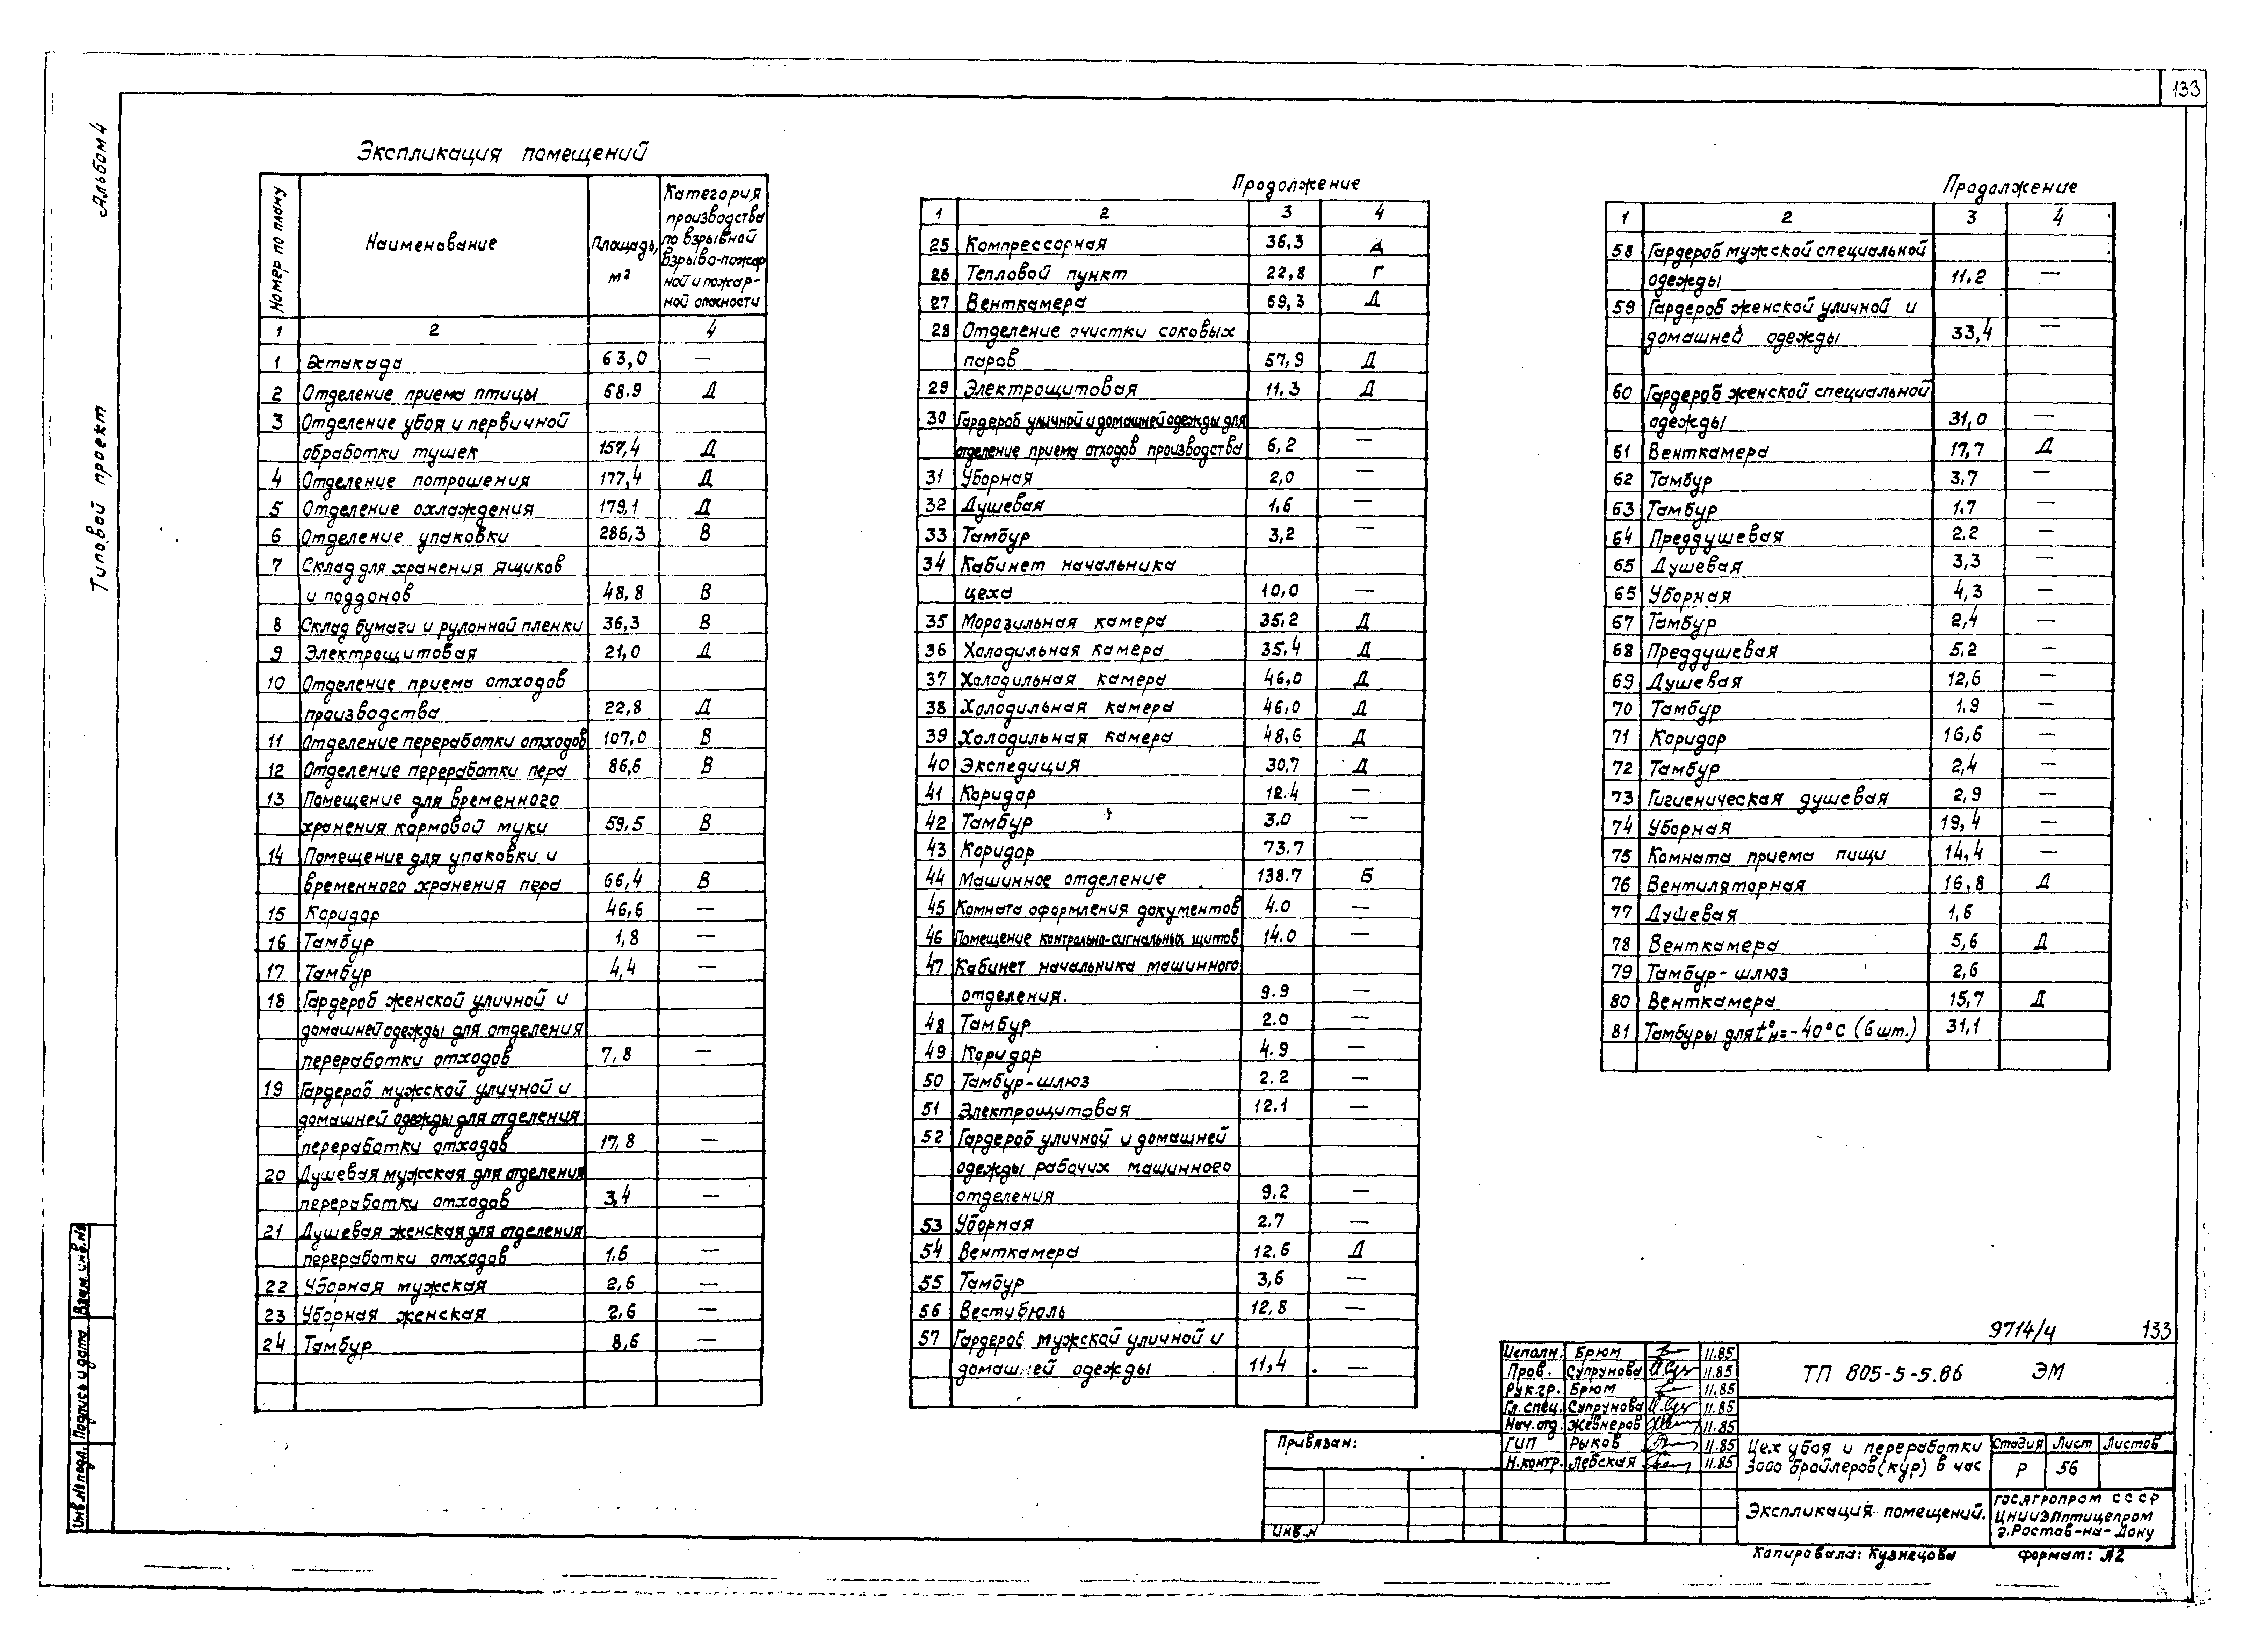 133
Альбом 4
Типовой проект
Экспликация помещений
Номер по плану | Наименование | Площадь, м² | Категория производства по взрывной взрыво-пожарной и пожарной опасности
1 | 2 | | 4
1 Эстакада 63,0 —
2 Отделение приема птицы 68.9 Д
3 Отделение убоя и первичной
обработки тушек 157,4 Д
4 Отделение потрошения 177,4 Д
5 Отделение охлаждения 179,1 Д
6 Отделение упаковки 286,3 В
7 Склад для хранения ящиков
и поддонов 48,8 В
8 Склад бумаги и рулонной пленки 36,3 В
9 Электрощитовая 21,0 Д
10 Отделение приема отходов
производства 22,8 Д
11 Отделение переработки отходов 107,0 В
12 Отделение переработки пера 86,6 В
13 Помещение для временного
хранения кормовой муки 59,5 В
14 Помещение для упаковки и
временного хранения пера 66,4 В
15 Коридор 46,6 —
16 Тамбур 1,8 —
17 Тамбур 4,4 —
18 Гардероб женской уличной и
домашней одежды для отделения
переработки отходов 7,8 —
19 Гардероб мужской уличной и
домашней одежды для отделения
переработки отходов 17,8 —
20 Душевая мужская для отделения
переработки отходов 3,4 —
21 Душевая женская для отделения
переработки отходов 1.6 —
22 Уборная мужская 2,6 —
23 Уборная женская 2,6 —
24 Тамбур 8,6 —
Продолжение
1 2 3 4
25 Компрессорная 36,3 Д
26 Тепловой пункт 22,8 Г
27 Венткамера 69,3 Д
28 Отделение очистки соковых
паров 57,9 Д
29 Электрощитовая 11.3 Д
30 Гардероб уличной и домашней одежды для
отделение приема отходов производства 6,2 —
31 Уборная 2,0 —
32 Душевая 1,6 —
33 Тамбур 3,2 —
34 Кабинет начальника
цеха 10,0 —
35 Морозильная камера 35,2 Д
36 Холодильная камера 35,4 Д
37 Холодильная камера 46,0 Д
38 Холодильная камера 46,0 Д
39 Холодильная камера 48,6 Д
40 Экспедиция 30,7 Д
41 Коридор 12.4 —
42 Тамбур 3.0 —
43 Коридор 73.7 —
44 Машинное отделение 138.7 Б
45 Комната оформления документов 4.0 —
46 Помещение контрольно-сигнальных щитов 14.0 —
47 Кабинет начальника машинного
отделения. 9.9 —
48 Тамбур 2.0 —
49 Коридор 4.9 —
50 Тамбур-шлюз 2.2 —
51 Электрощитовая 12.1 —
52 Гардероб уличной и домашней
одежды рабочих машинного
отделения 9,2 —
53 Уборная 2.7 —
54 Венткамера 12,6 Д
55 Тамбур 3,6 —
56 Вестибюль 12,8 —
57 Гардероб мужской уличной и
домашней одежды 11,4 —
Продолжение
1 2 3 4
58 Гардероб мужской специальной
одежды 11,2 —
59 Гардероб женской уличной и
домашней одежды 33,4 —
60 Гардероб женской специальной
одежды 31,0 —
61 Венткамера 17,7 Д
62 Тамбур 3,7 —
63 Тамбур 1.7 —
64 Преддушевая 2.2 —
65 Душевая 3,3 —
65 Уборная 4,3 —
67 Тамбур 2,4 —
68 Преддушевая 5,2 —
69 Душевая 12,6 —
70 Тамбур 1,9 —
71 Коридор 16,6 —
72 Тамбур 2,4 —
73 Гигиеническая душевая 2,9 —
74 Уборная 19,4 —
75 Комната приема пищи 14,4 —
76 Вентиляторная 16,8 Д
77 Душевая 1,6
78 Венткамера 5,6 Д
79 Тамбур-шлюз 2,6
80 Венткамера 15,7 Д
81 Тамбуры для t°н=-40°С (6 шт.) 31,1
9714/4 133
Исполн. Брюм 11.85
Пров. Супрунова 11.85
Рук.гр. Брюм 11.85
Гл.спец. Супрунова 11.85
Нач.отд. Жевнеров 11.85
ГИП Рыков 11.85
Н.контр. Левская 11.85
ТП 805-5-5.86 ЭМ
Цех убоя и переработки
3000 бройлеров (кур) в час
Стадия Лист Листов
Р 56
Экспликация помещений.
Госагропром СССР
ЦНИИЭПптицепром
г.Ростов-на-Дону
Привязан:
Инв.N
Копировала: Кузнецова Формат: А2
Инв.№ подл. Подпись и дата Взам.инв.№